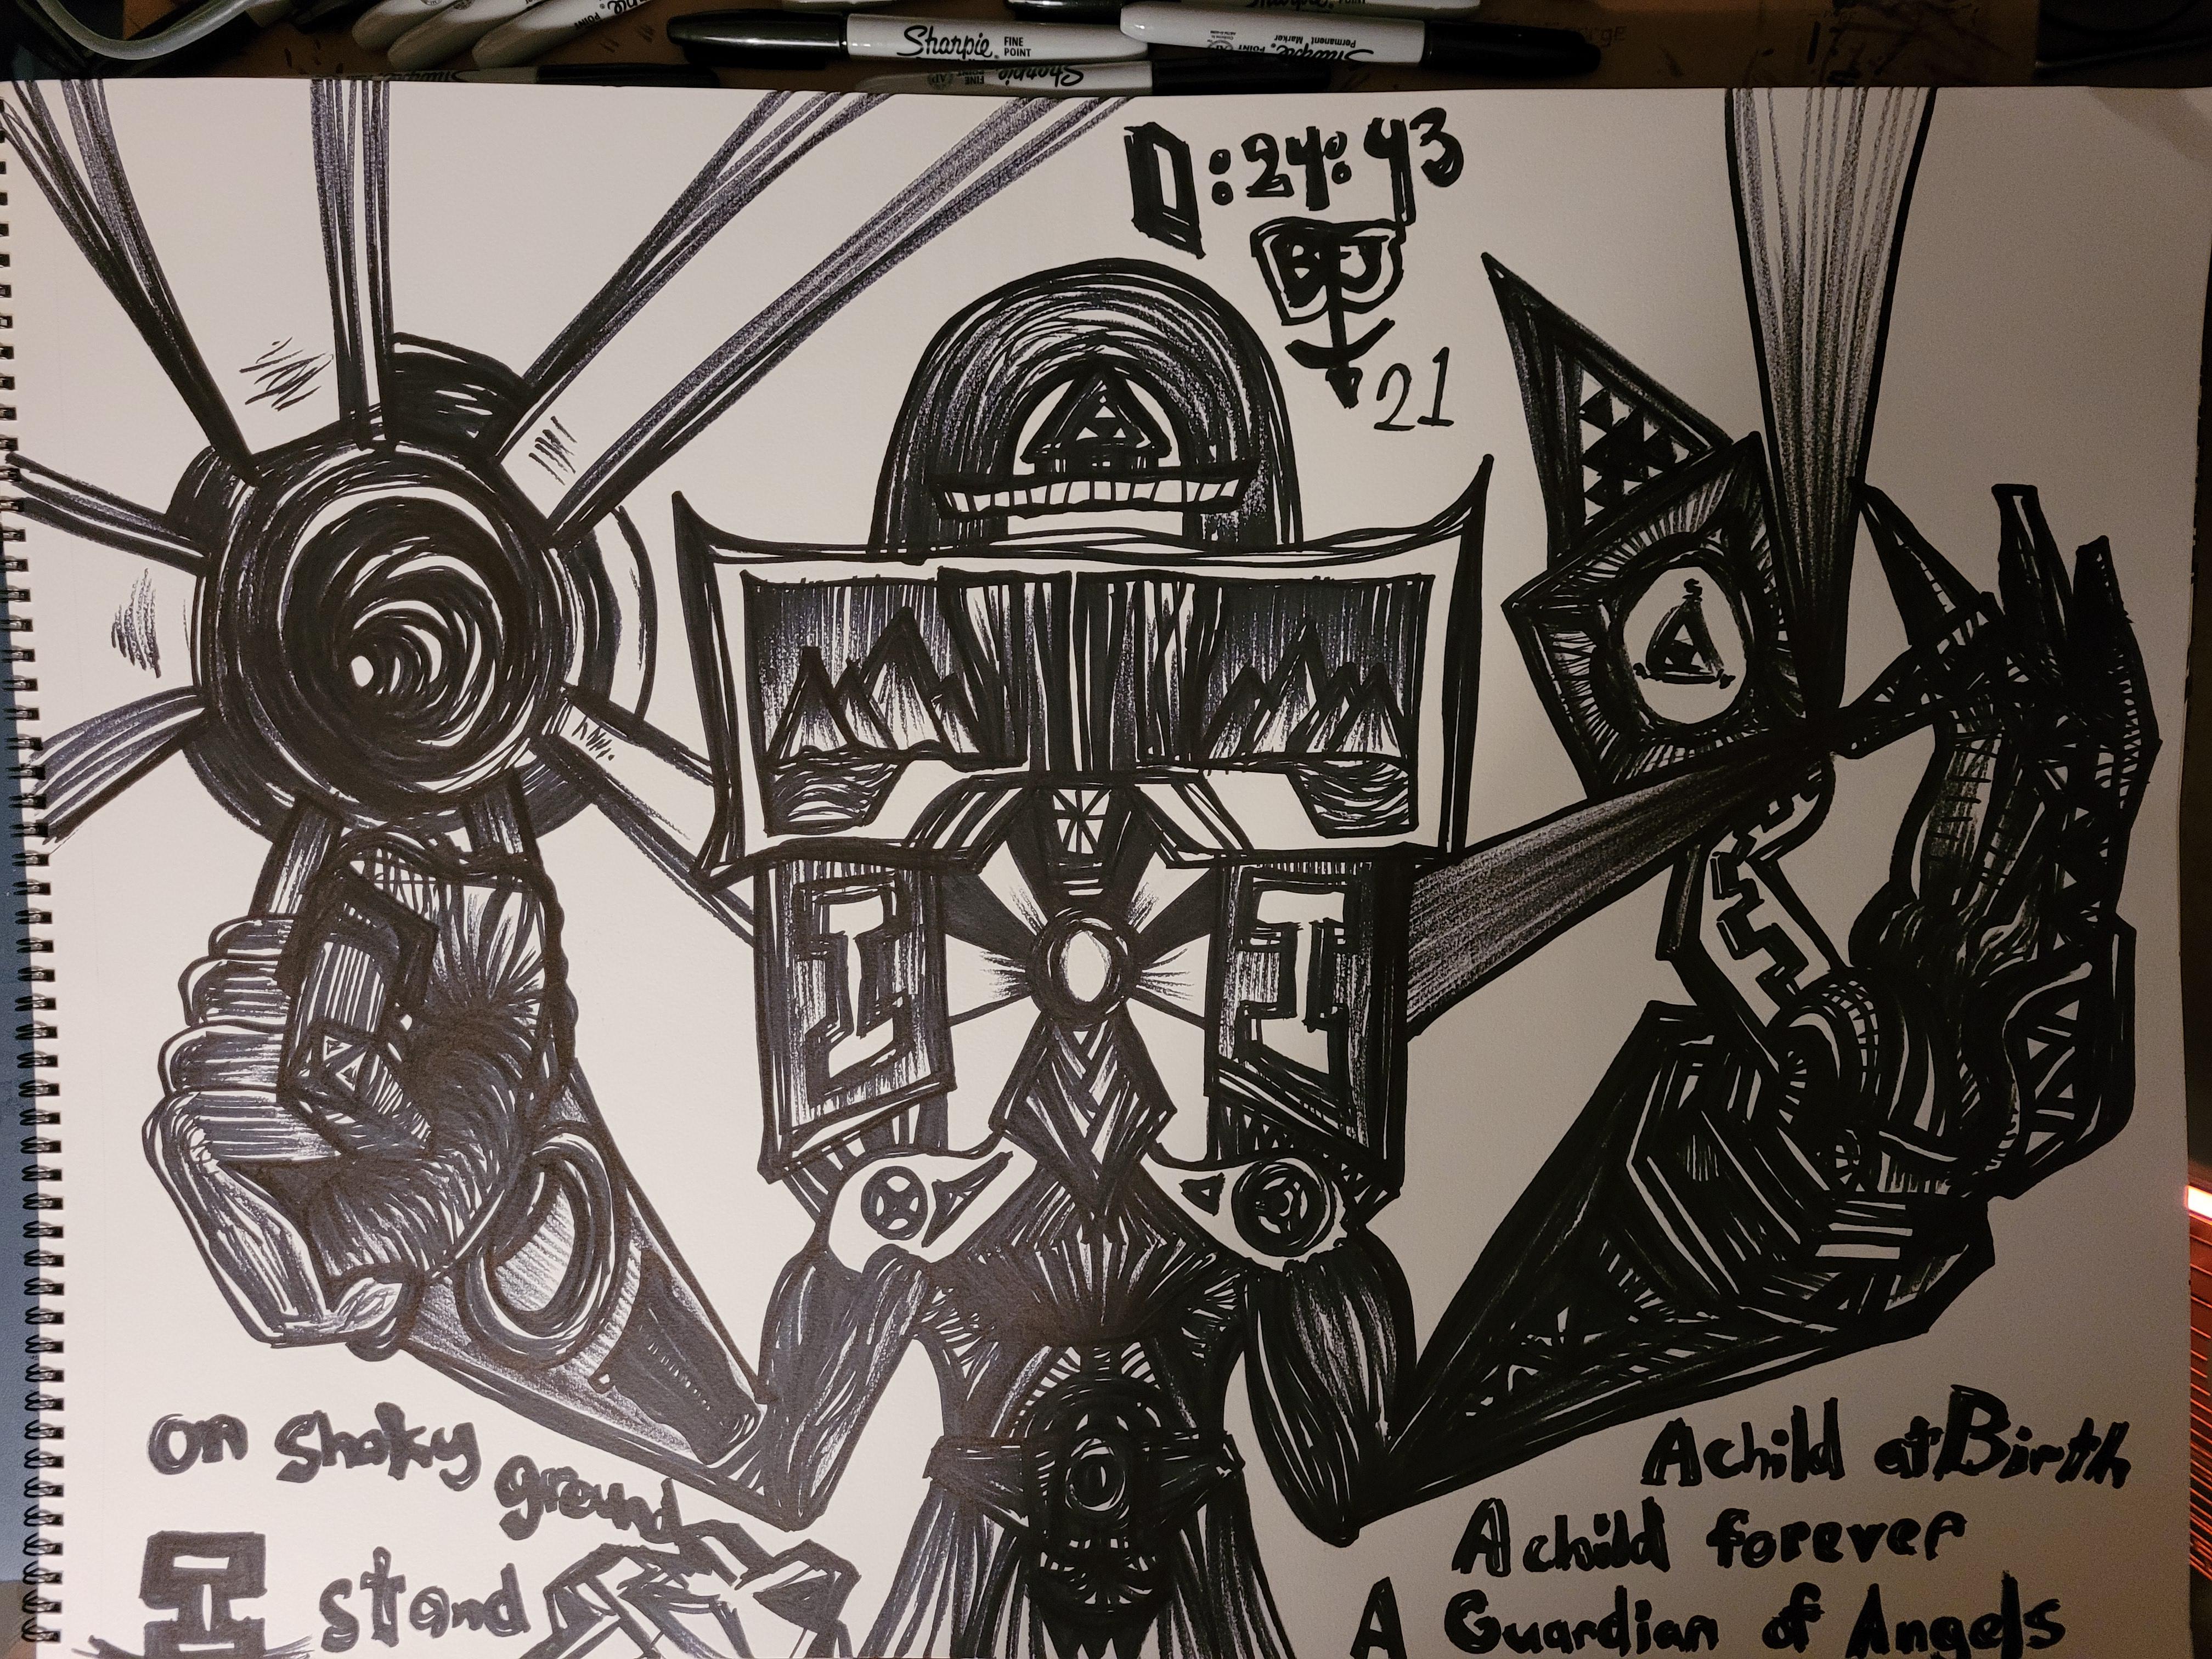 Sharpie FINE POINT
Sharpie FINE POINT
Sharpie Permanent Marker
0:24:43
BJ
21
S
on shaky
ground
I stand
A child at Birth
A child forever
A Guardian of Angels